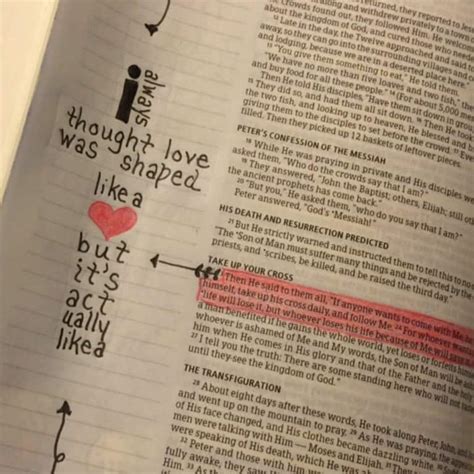 i always
thought love
was shaped
like a
but
it's
act
ually
like a
returned, they reported to
along and withdrew privately to a town
crowds found out, they followed Him. He
about the kingdom of God, and cured those who
Late in the day, the Twelve approached and said
away, so they can go into the surrounding villages and
and lodging, because we are in a deserted place
"You give them something to eat," He told them.
"We have no more than five loaves and two fish,"
and buy food for all these people." (For about 5,000
Then He told His disciples, "Have them sit down in
They did so, and had them all sit down. Then
the two fish, and looking up to heaven, He blessed and
giving them to the disciples to set before the crowd.
filled. Then they picked up 12 baskets of leftover pieces.
PETER'S CONFESSION OF THE MESSIAH
18 While He was praying in private and His disciples
asked them, "Who do the crowds say that I am?"
They answered, "John the Baptist; others, Elijah; still
the ancient prophets has come back."
20 "But you," He asked them, "who do you say that I am?"
Peter answered, "God's Messiah!"
HIS DEATH AND RESURRECTION PREDICTED
21 But He strictly warned and instructed them to tell this to no
"The Son of Man must suffer many things and be rejected by the
priests, and scribes, be killed, and be raised the third day."
TAKE UP YOUR CROSS
Then He said to them all, "If anyone wants to come with Me,
himself, take up his cross daily, and follow Me. 24 For whoever
life will lose it, but whoever loses his life because of Me will
a man benefited if he gains the whole world, yet loses or forfeits
whoever is ashamed of Me and My words, the Son of Man will
him when He comes in His glory and that of the Father and the
27 I tell you the truth: There are some standing here who will not
until they see the kingdom of God."
THE TRANSFIGURATION
28 About eight days after these words, He took along Peter, John,
and went up on the mountain to pray. 29 As He was praying, the
of His face changed, and His clothes became dazzling white.
men were talking with Him — Moses and Elijah.
were speaking of His death, which He was
32 Peter and those with Him were in
fully awake, they saw His
Him. 33 As the